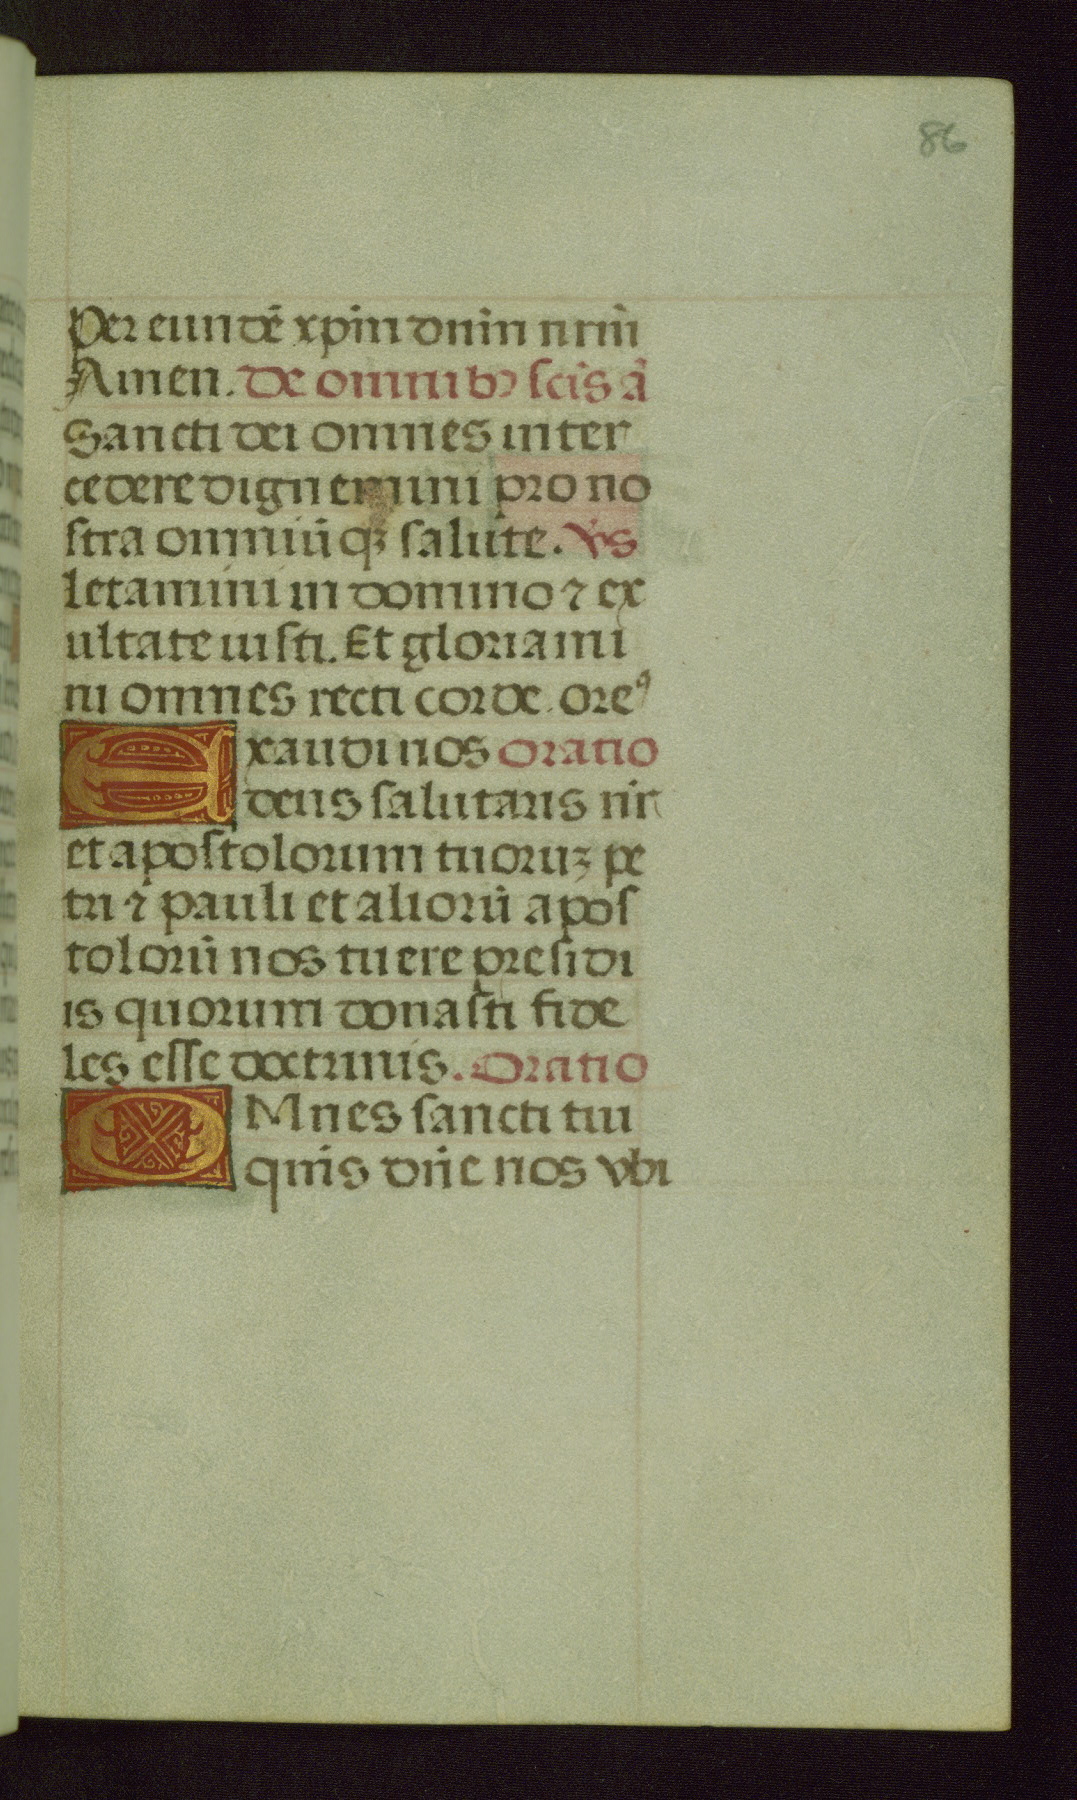 86
Per eundē xpm̄ dnm̄ nrm̄
Amen. De omnibꝰ scīs ā
Sancti dei omnes inter
cedere dignemini pro no
stra omniūqꝫ salute. v̓s
letamini in domino ⁊ ex
ultate iusti. Et gloriami
ni omnes recti corde. oreꝰ
Exaudi nos oratio
deus salutaris nr̄
et apostolorum tuoruꝫ pe
tri ⁊ pauli et aliorū apos
tolorū nos tuere presidi
is quorum donasti fide
les esse doctrinis. Oratio
OMnes sancti tui
qm̄s dn̄e nos vbi